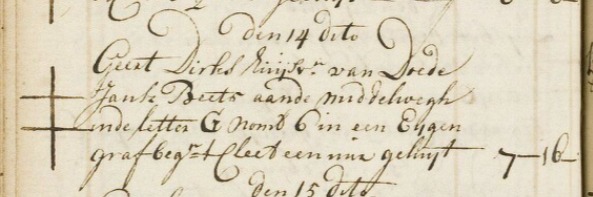 den 14 dito
Geert Dirks huijsvr. van Doede
Jansz Beets aande middelwegh
inde letter G nomb 6 in een Eijgen
graf begr. t Cleet een uur geluijt 7-16-
den 15 dito